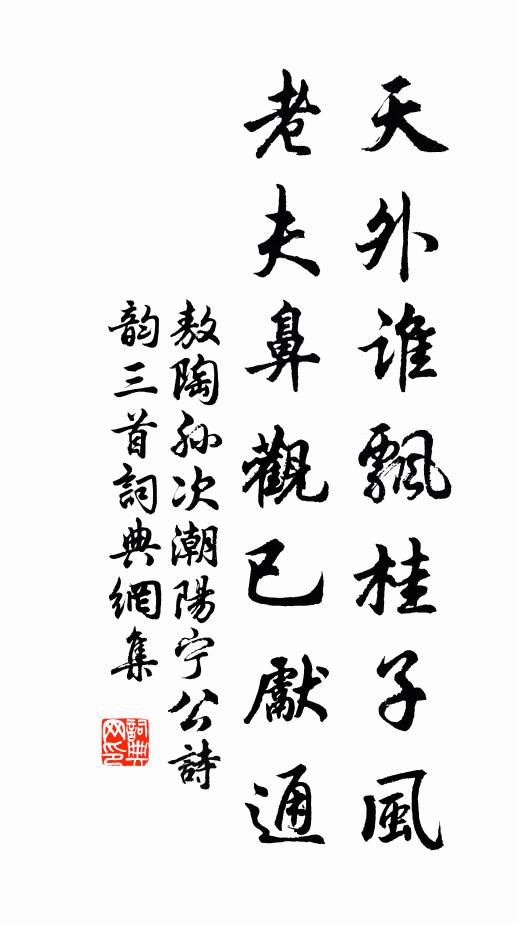 天外谁飄桂子風
老夫鼻觀已獻通
敖陶孙次潮陽宁公詩
韵三首詞典網集
詞典網印